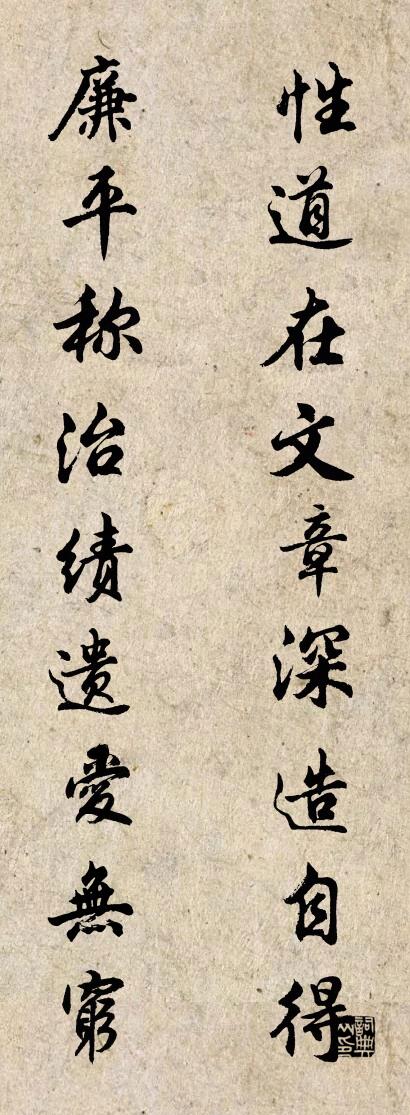 性道在文章深造自得
廉平称治绩遗愛無窮